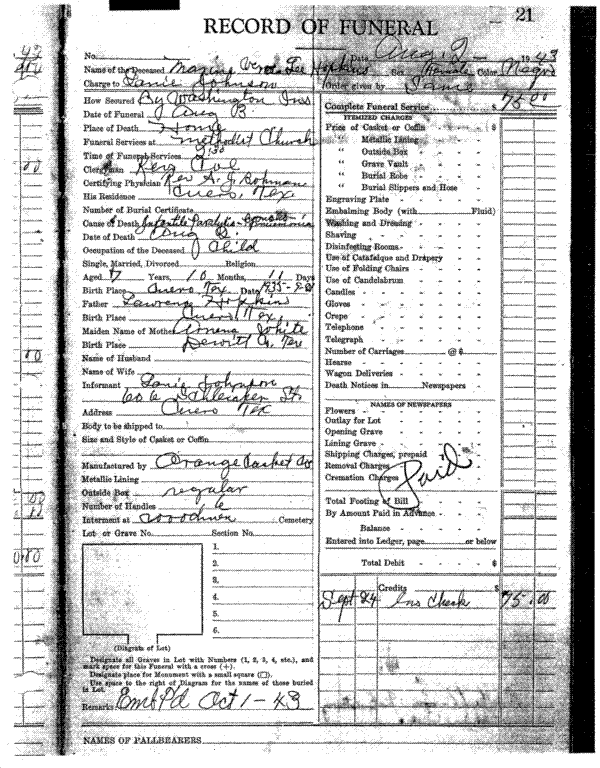 21
RECORD OF FUNERAL
No. Date Aug. 2 1943
Name of the Deceased Maxine Verda Lee Hopkins Sex Female Color Negro
Charge to Janie Johnson Order given by Same
How Secured By Washington Ins
Date of Funeral Aug 3.
Place of Death Home
Funeral Services at Methodist Church
Time of Funeral Services
Clergyman
Certifying Physician
His Residence Cuero, Tex
Number of Burial Certificate
Cause of Death Infantile Paralysis - Pneumonia
Date of Death Aug 2.
Occupation of the Deceased Child
Single, Married, Divorced Religion
Aged 7 Years, 10 Months, 11 Days
Birth Place Cuero Tex. Date 1935-9-21
Father Lawrence Hopkins
Birth Place Cuero Tex.
Maiden Name of Mother White
Birth Place Dewitt Co. Tex
Name of Husband
Name of Wife
Informant Janie Johnson
St.
Address Cuero Tex
Body to be shipped to
Size and Style of Casket or Coffin
Manufactured by Orange Casket Co
Metallic Lining
Outside Box regular
Number of Handles 6
Interment at Woodmen Cemetery
Lot or Grave No. Section No.
1.
2.
3.
4.
5.
6.
(Diagram of Lot)
Designate all Graves in Lot with Numbers (1, 2, 3, 4, etc.), and
mark space for this Funeral with a cross (+).
Designate place for Monument with a small square (□).
Use space to the right of Diagram for the names of those buried
in Lot.
Remarks Emb Pd Oct 1-43
NAMES OF PALLBEARERS
Complete Funeral Service $ 75.00
ITEMIZED CHARGES
Price of Casket or Coffin $
" Metallic Lining
" Outside Box
" Grave Vault
" Burial Robe
" Burial Slippers and Hose
Engraving Plate
Embalming Body (with Fluid)
Washing and Dressing
Shaving
Disinfecting Rooms
Use of Catafalque and Drapery
Use of Folding Chairs
Use of Candelabrum
Candles
Gloves
Crepe
Telephone
Telegraph
Number of Carriages @ $
Hearse
Wagon Deliveries
Death Notices in Newspapers
NAMES OF NEWSPAPERS
Flowers
Outlay for Lot
Opening Grave
Lining Grave
Shipping Charges, prepaid
Removal Charges
Cremation Charges
Paid
Total Footing of Bill $
By Amount Paid in Advance
Balance
Entered into Ledger, page or below
Total Debit $
Credits $
Sept 24 Ins Check 75.00